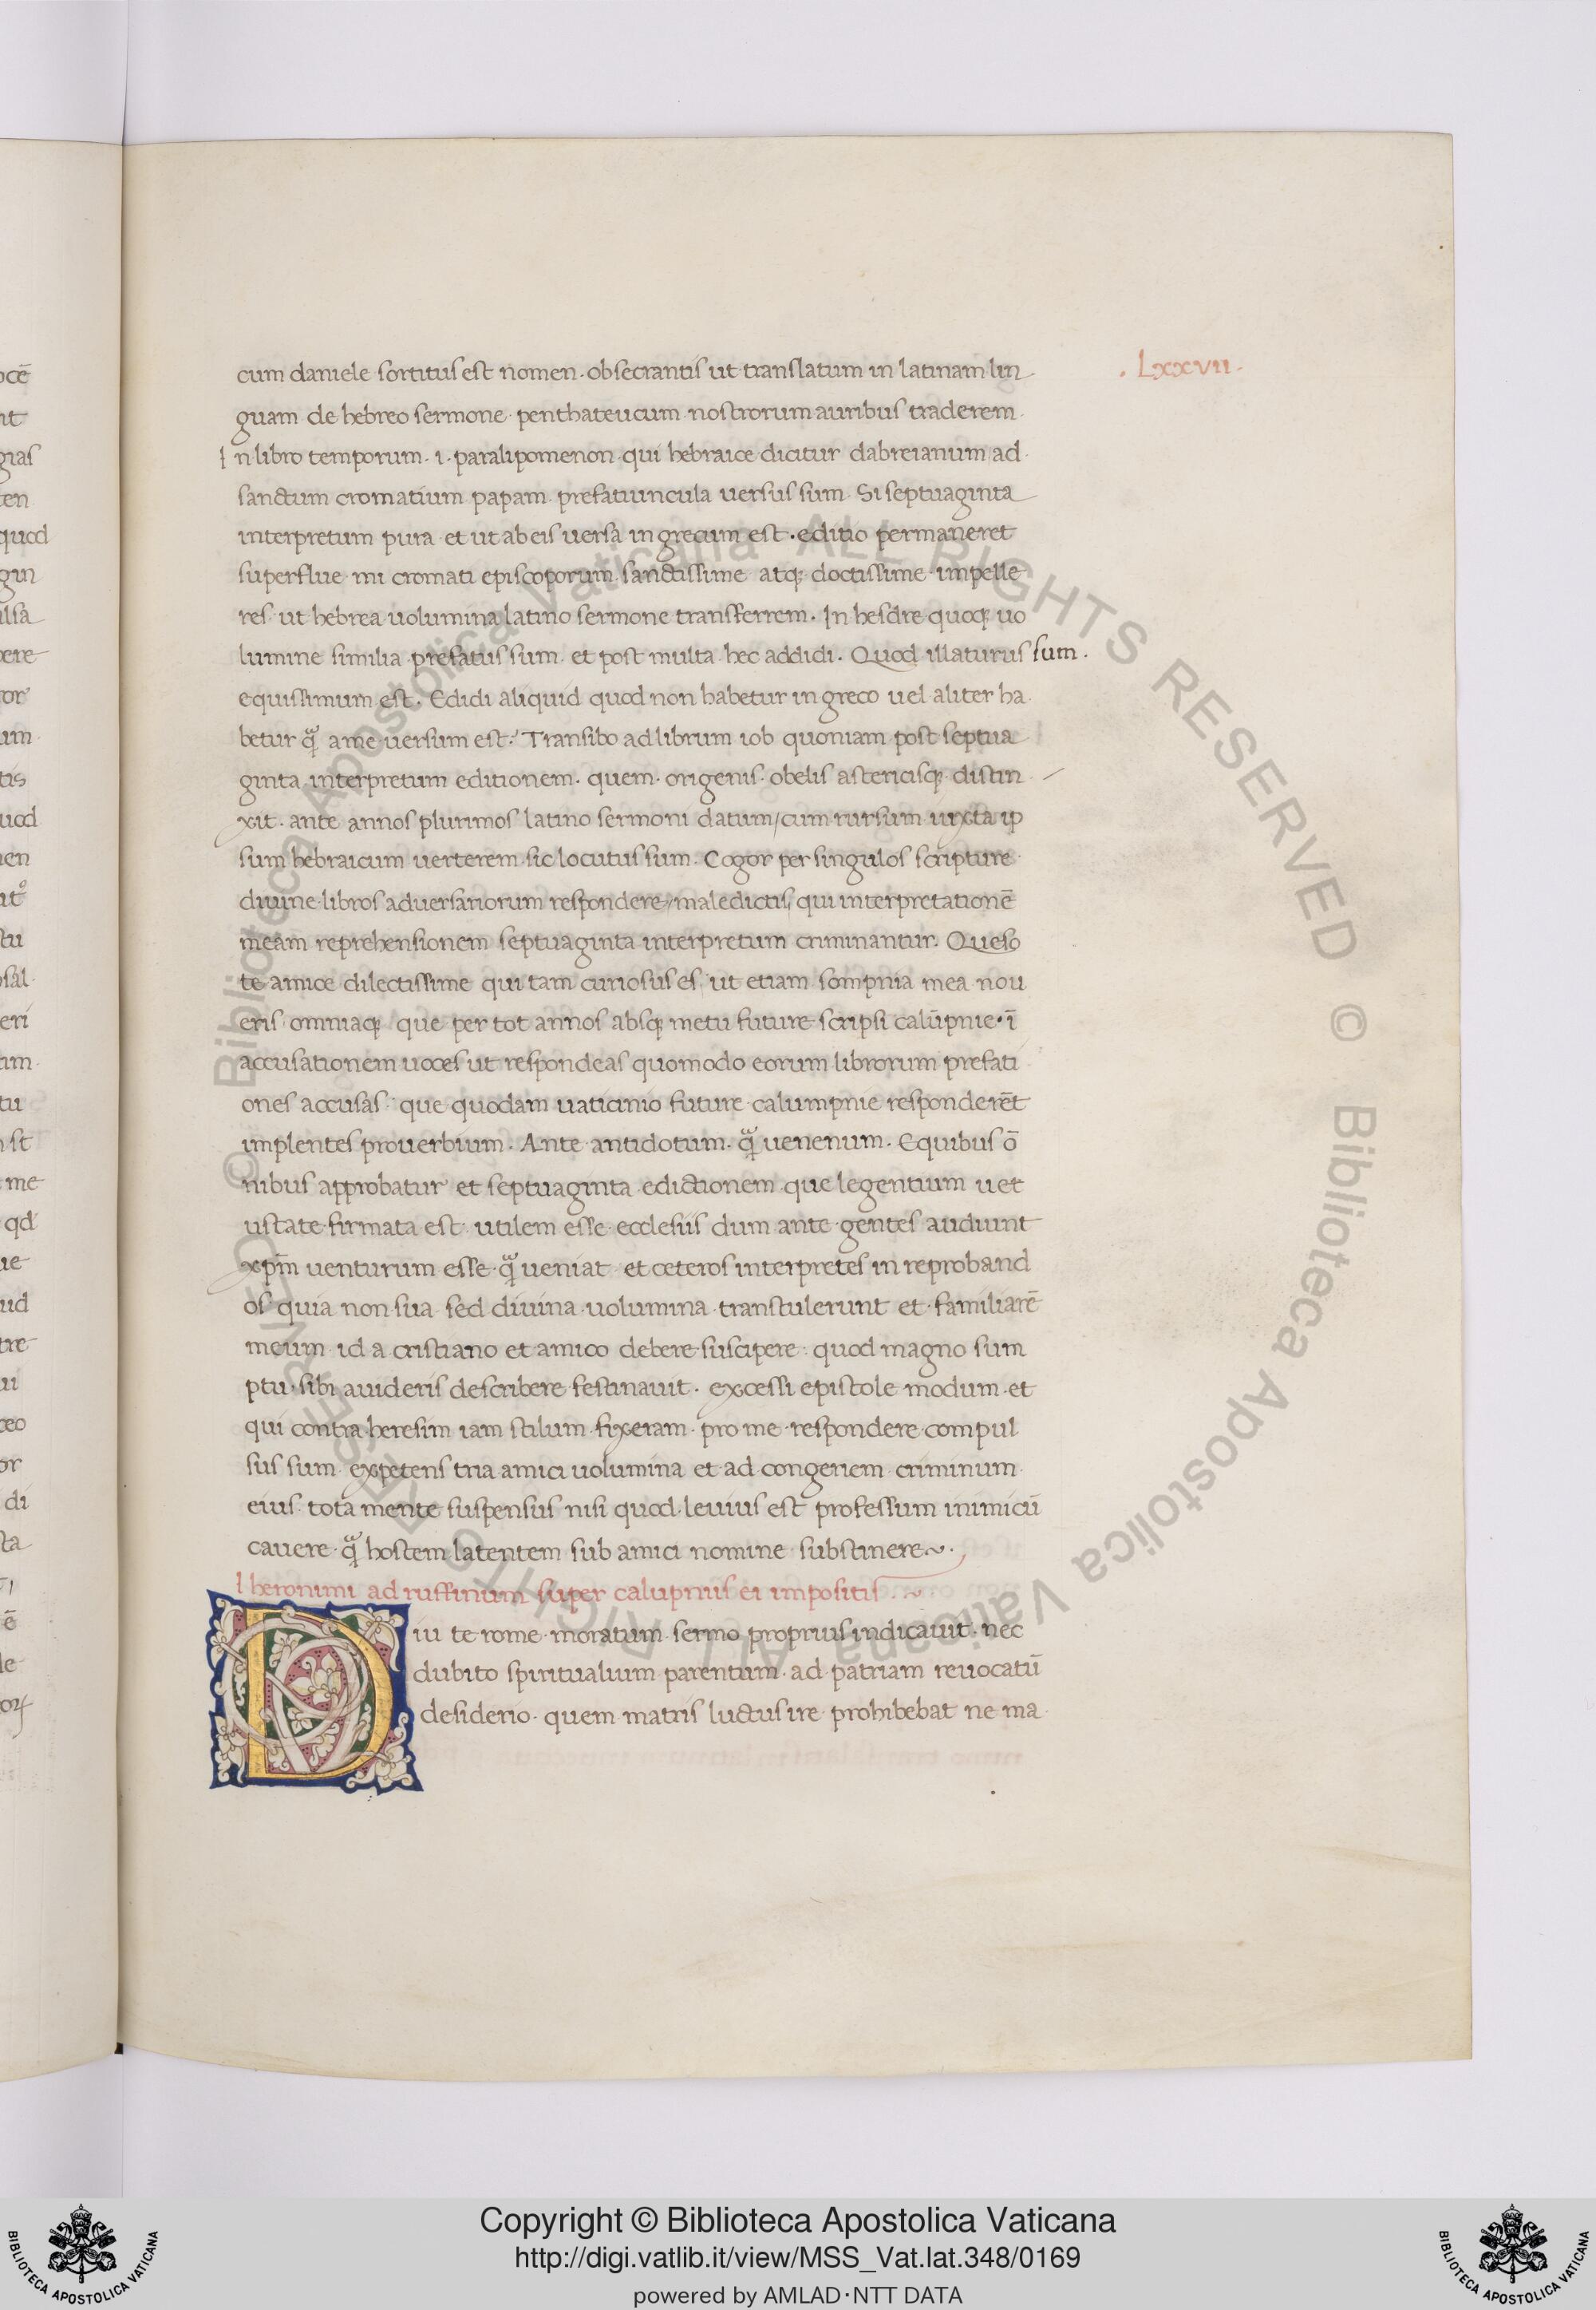 . Lxxvii .
cum daniele sortitus est nomen . obsecrantis ut translatum in latinam lin
guam de hebreo sermone penthateucum nostrorum auribus traderem .
In libro temporum . i . paralipomenon qui hebraice dicitur dabreianum ad
sanctum cromatium papam prefatiuncula uersus sum . Si septuaginta
interpretum pura et ut ab eis uersa in grecum est . editio permaneret
superflue mi cromati episcoporum sanctissime atq; doctissime impelle
res ut hebrea uolumina latino sermone transferrem . In hesdre quoq; uo
lumine similia prefatus sum et post multa hec addidi . Quod illaturus sum .
equissimum est . Edidi aliquid quod non habetur in greco uel aliter ha
betur q̃ ame uersum est . Transibo ad librum iob quoniam post septua
ginta interpretum editionem . quem . origenis . obelis astericisq; distin
xit . ante annos plurimos latino sermoni datum / cum rursum iuxta ip
sum hebraicum uerterem sic locutus sum . Cogor per singulos scripture
diuine libros aduersariorum respondere maledictis qui interpretationē
meam reprehensionem septuaginta interpretum criminantur . Queso
te amice dilectissime qui tam curiosus es ut etiam sompnia mea nou
eris omniaq; que per tot annos absq; metu future scripsi calūpnie . ī
accusationem uoces ut respondeas quomodo eorum librorum prefati
ones accusas que quodam uaticinio future calumpnie responderēt
implentes prouerbium . Ante antidotum . q̃ uenenum . Equibus ō
nibus approbatur et septuaginta edictionem que legentium uet
ustate firmata est utilem esse ecclesiis dum ante gentes audiunt
xp̄m uenturum esse q̃ ueniat et ceteros interpretes in reproband
os quia non sua sed diuina uolumina transtulerunt et familiarē
meum id a cristiano et amico debere suscipere quod magno sum
ptu sibi auideris describere festinauit . excessi epistole modum et
qui contra heresim iam stilum fixeram . pro me respondere compul
sus sum expetens tria amici uolumina et ad congeriem criminum
eius tota mente suspensus nisi quod leuius est professum inimicū
cauere q̃ hostem latentem sub amici nomine substinere ~ .
Iheronimi ad ruffinum super calupniis ei impositis . ~
Diu te rome moratum sermo proprius indicauit . nec
dubito spiritualium parentum ad patriam reuocatū
desiderio . quem matris luctus ire prohibebat ne ma
Copyright © Biblioteca Apostolica Vaticana
http://digi.vatlib.it/view/MSS_Vat.lat.348/0169
powered by AMLAD·NTT DATA